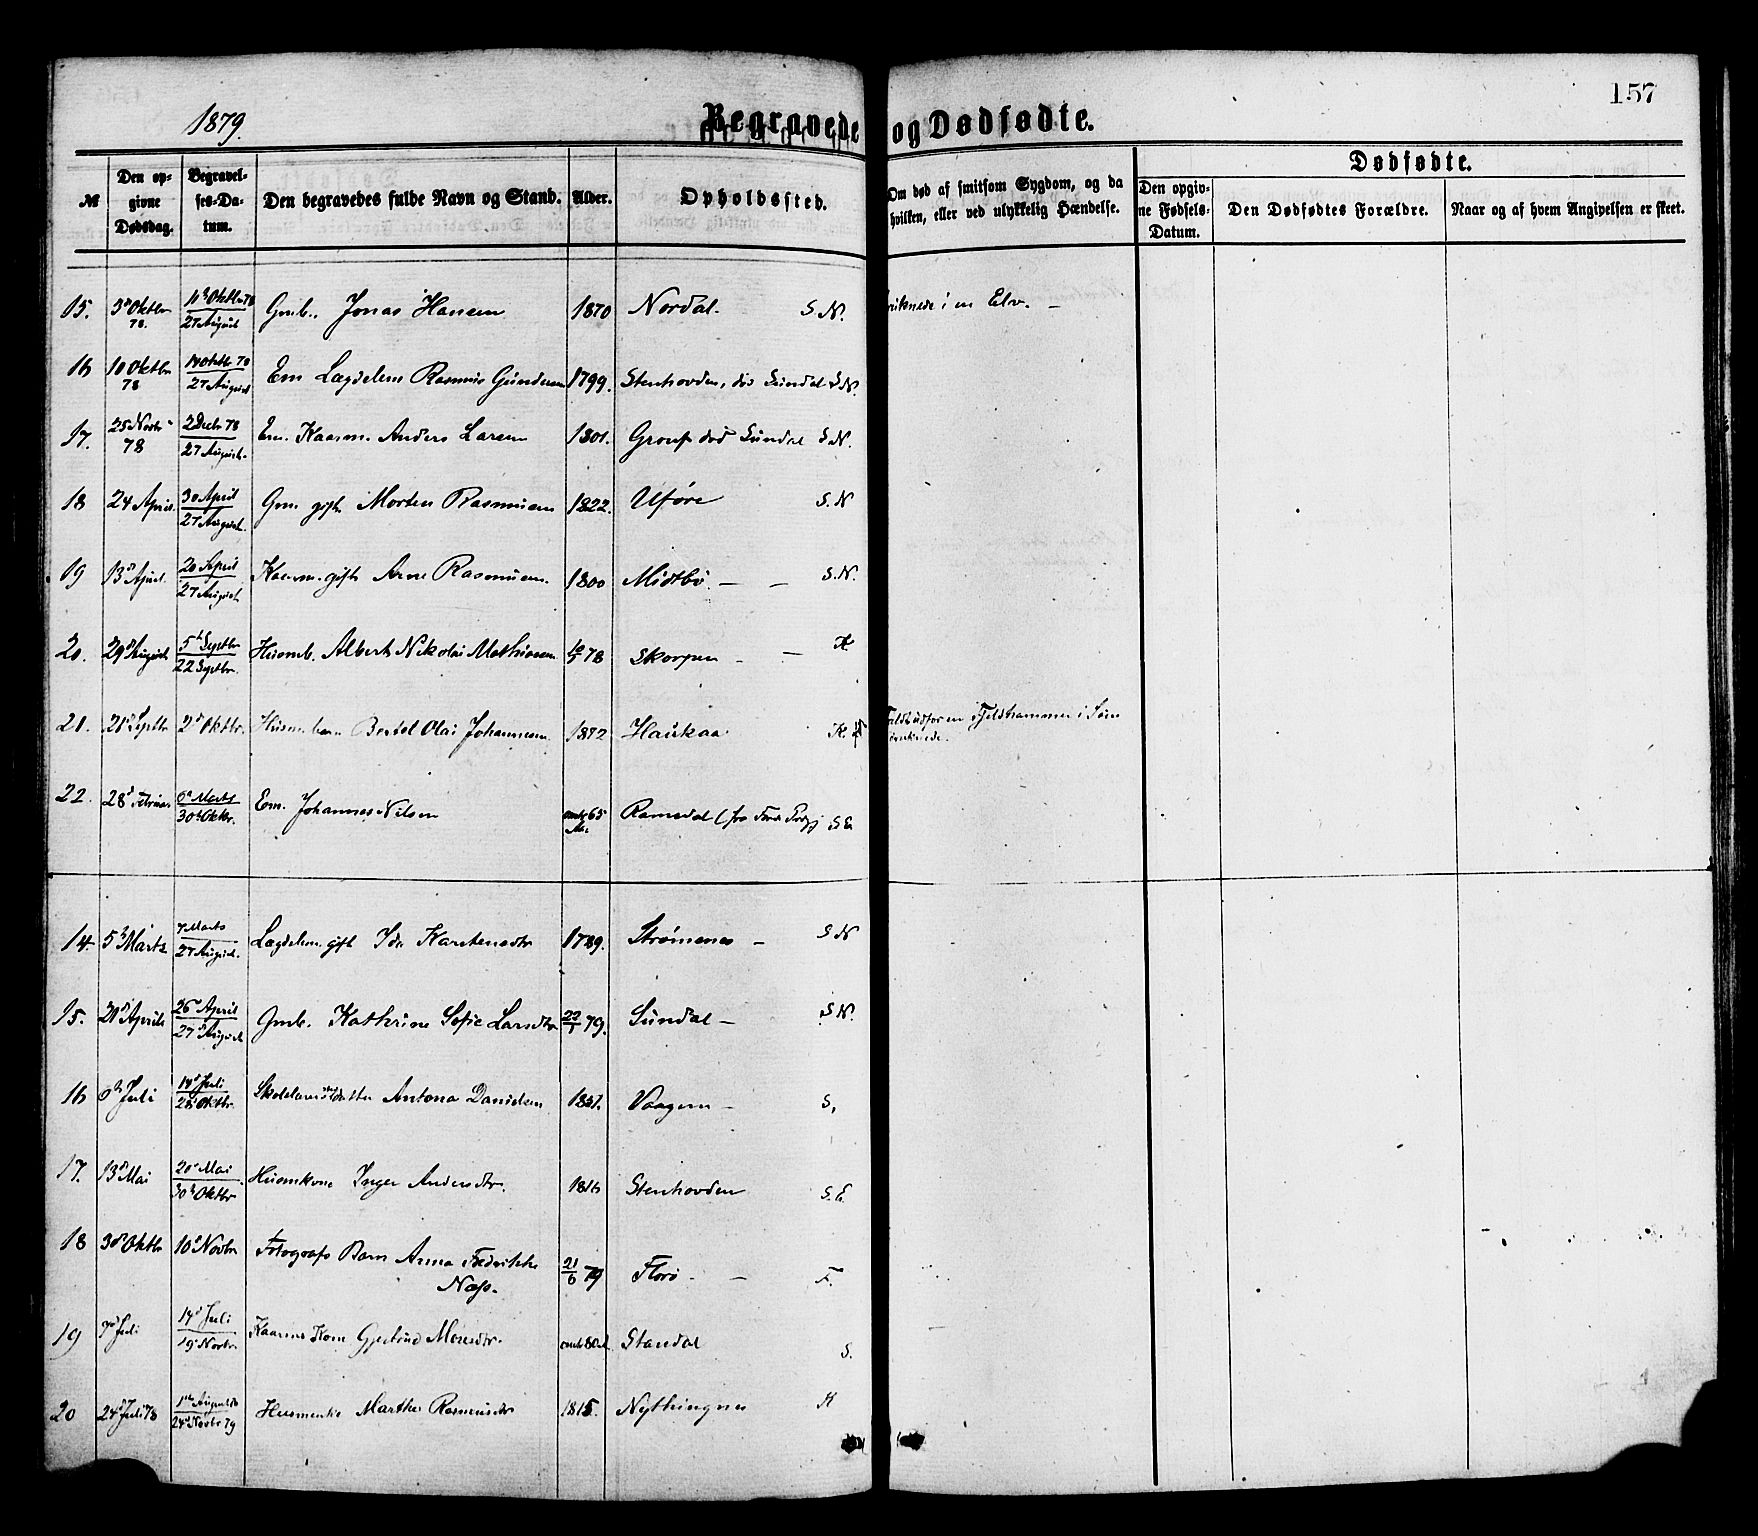 157
1879.
Begravede og Dødfødte.
Dødfødte.
№ Den op-givne Dødsdag. Begravel-ses-Da-tum. Den begravedes fulde Navn og Stand. Alder. Opholdssted. Om død af smitsom Sygdom, og da hvilken, eller ved ulykkelig Hændelse. Den opgiv-ne Fødsels-Datum. Den Dødfødtes Forældre. Naar og af hvem Angivelsen er skeet.
15. 3d Oktbr 78. 10d Oktbr 78 / 27 August Gmb. Jonas Hansen 1870 Nordal. S. N. i en Elv. —
16 10 Oktbr 78 Oktbr 78 / 27 August Em Lægdslem Rasmus Gundersen 1799. Stenhovden, død Sundal S N.
17. 25 Novbr 78 2 Decbr 78 / 27 August. Em. Kaarm. Anders Larsen 1801. død Sundal S N.
18 24 April. 30 April / 27 August. Gm. gift Morten Rasmussen 1822. Uføre S. N
19 13d April. 20 April / 27 August Kaarm. gift Arne Rasmussen. 1800 Midtbø. — — S. N.
20. 29d August 5t Septbr / 22 Septbr. Husmb. Albert Nikolai Mathiasen 78 Skorpen — — K
21. Septbr 2d Oktbr. Husm. barn Bertel Olai Johannesen 1872 Haukaa K. udfor en Fjeldhammer i Søen
22. 28d Februar Marts / 30d Oktbr. Em. Johannes Nilsen 65 Ramsdal (fra Førde S E
14. 5d Marts 7 Marts / 27 August. Lægdslem gift Ida Karstensdtr 1789. Strømsnes — S N
15. 21d April 26 April / 27d August Gmb. Kathrine Sofie Larsdtr 79. Sundal — S N.
16 6d Juli 14d Juli / 28d Oktbr. datter Antona Danielsen Vaagene — S,
17. 13d Mai 20d Mai / 30d Oktbr Huskone Inger Andersdtr. 1816 Stenhovden S. E.
18 3d Oktbr 10d Novbr Fotografs Barn Anna Fredrikke Næss. 21/6 79 Florø — F.
19 7d Juli 14d Juli / 19d Novbr Kaarms Kone Gjertrud Monsdtr. Standal S.
20 24d Juli 78 1ste August 78 / 24d Novbr 79 Husmenke Marthe Rasmusdtr 1815. Nythingnes K